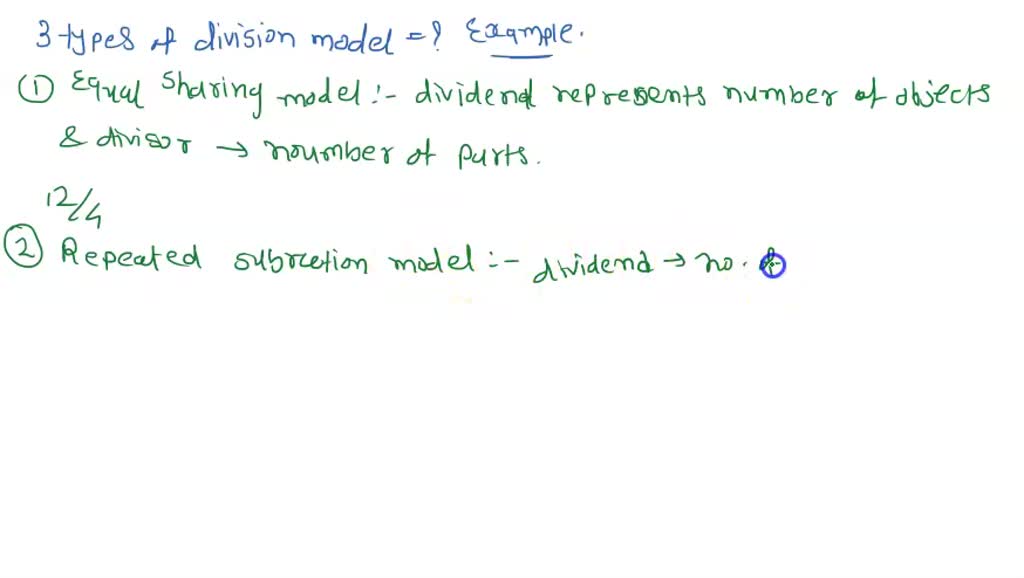 3 types of division model = ? Example.
① Equal Sharing model :- dividend represents number of objects
& divisor → noumber of parts.
12/4
② Repeated subrction model :- dividend → no. of